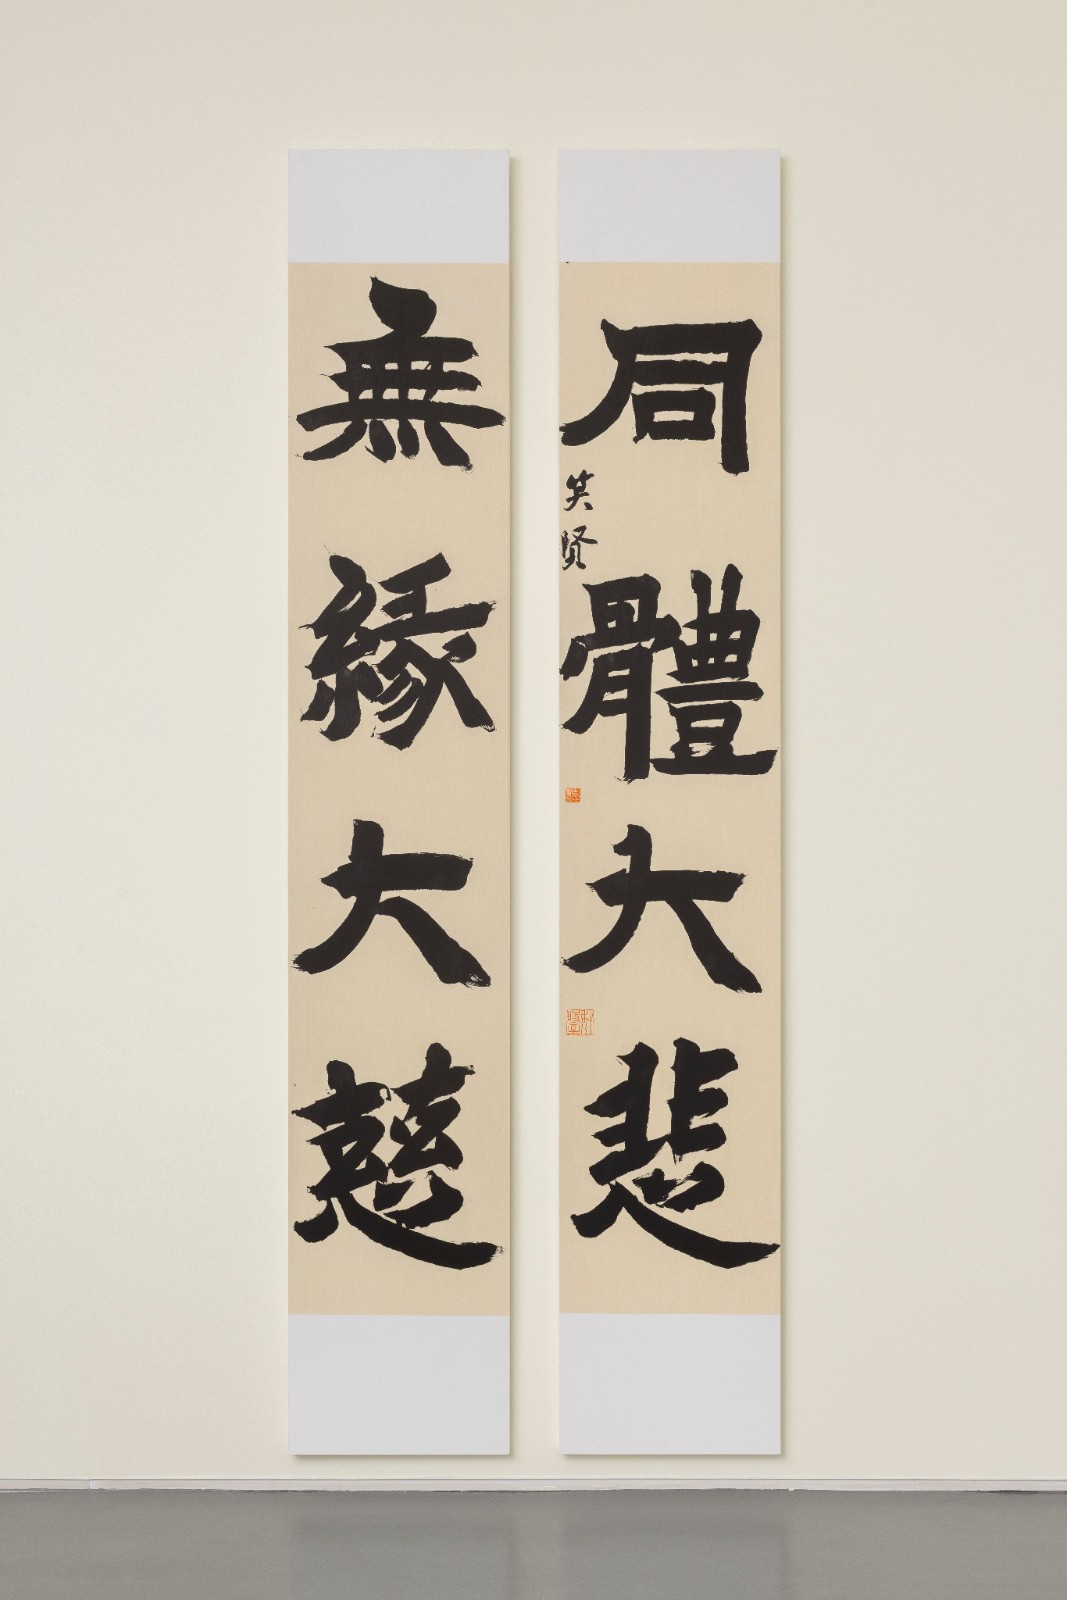 無緣大慈
同體大悲
笑贤